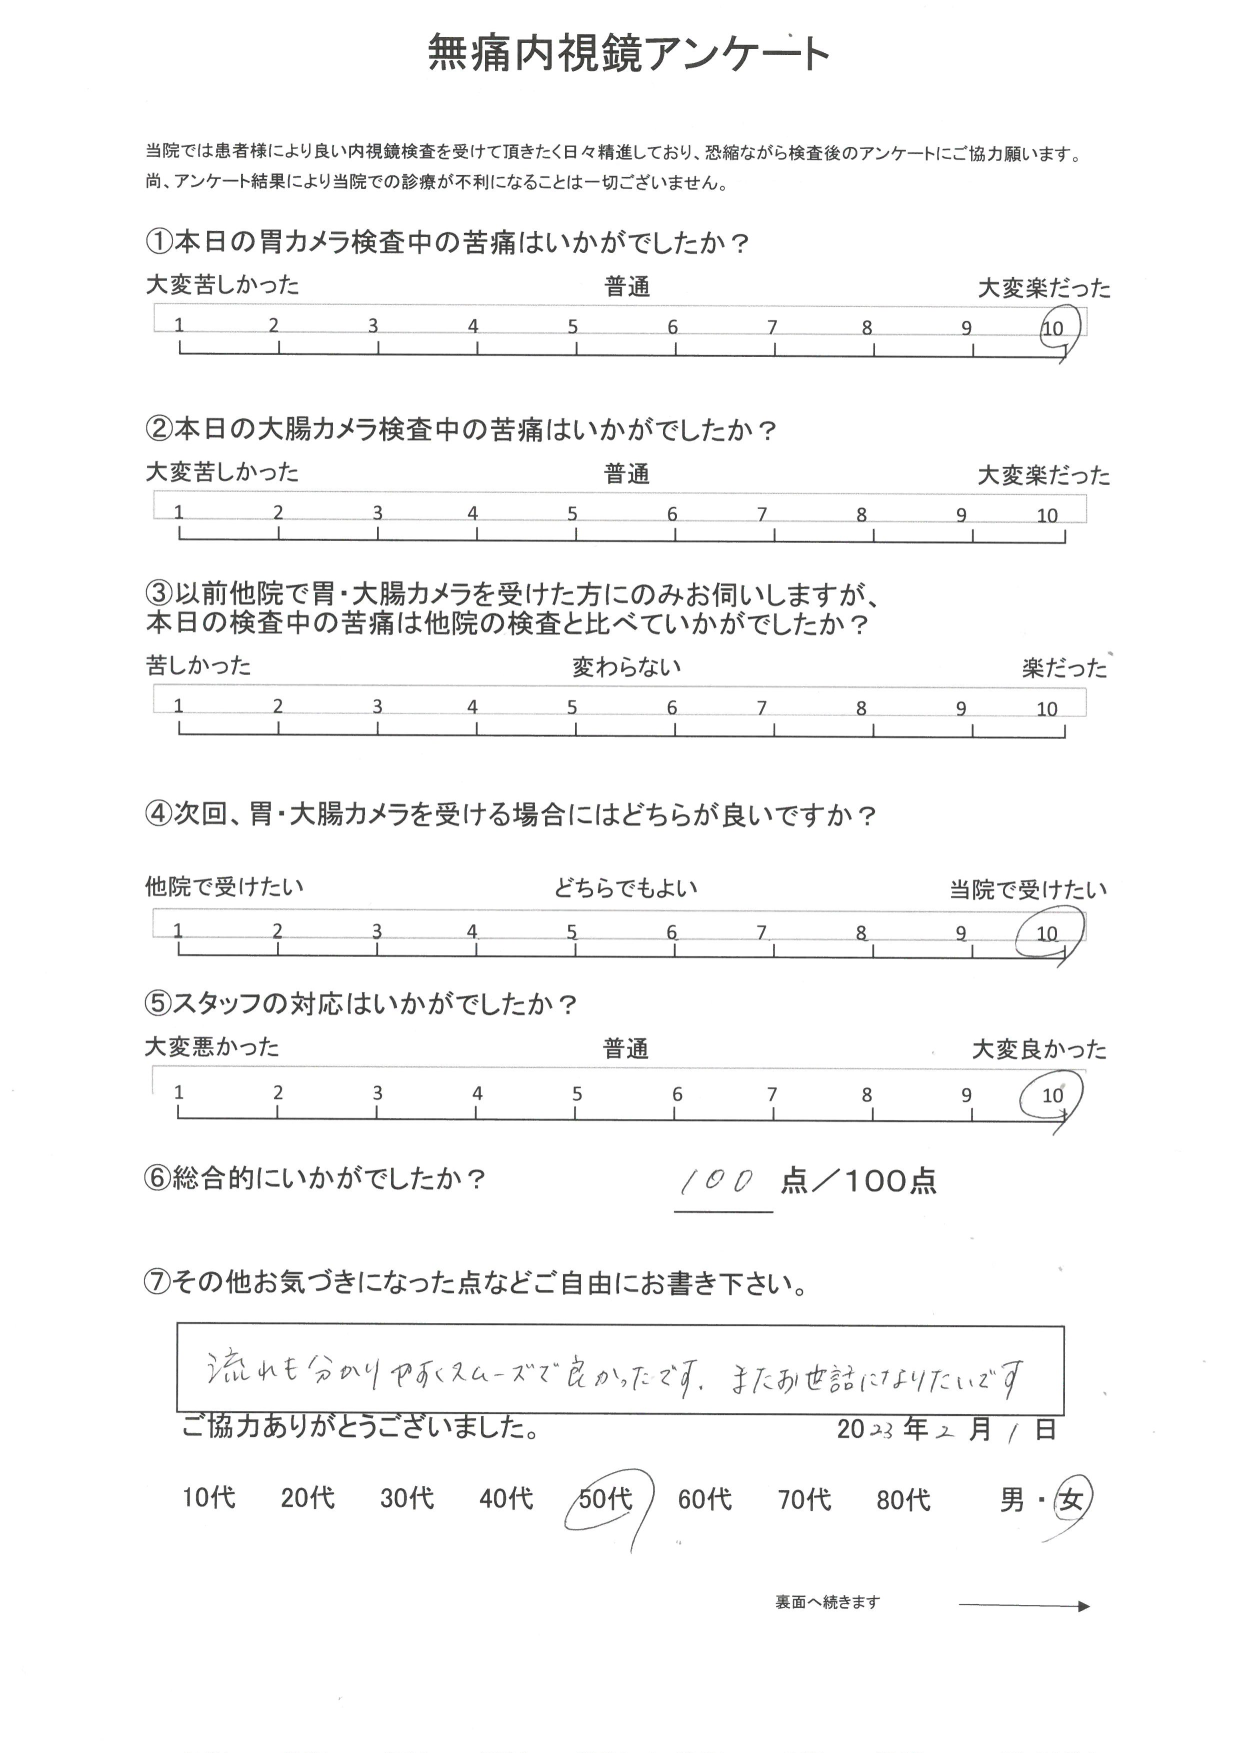 無痛内視鏡アンケート
当院では患者様により良い内視鏡検査を受けて頂きたく日々精進しており、恐縮ながら検査後のアンケートにご協力願います。
尚、アンケート結果により当院での診療が不利になることは一切ございません。
①本日の胃カメラ検査中の苦痛はいかがでしたか？
大変苦しかった 普通 大変楽だった
1 2 3 4 5 6 7 8 9 10
②本日の大腸カメラ検査中の苦痛はいかがでしたか？
大変苦しかった 普通 大変楽だった
1 2 3 4 5 6 7 8 9 10
③以前他院で胃・大腸カメラを受けた方にのみお伺いしますが、
本日の検査中の苦痛は他院の検査と比べていかがでしたか？
苦しかった 変わらない 楽だった
1 2 3 4 5 6 7 8 9 10
④次回、胃・大腸カメラを受ける場合にはどちらが良いですか？
他院で受けたい どちらでもよい 当院で受けたい
1 2 3 4 5 6 7 8 9 10
⑤スタッフの対応はいかがでしたか？
大変悪かった 普通 大変良かった
1 2 3 4 5 6 7 8 9 10
⑥総合的にいかがでしたか？ 100 点／100点
⑦その他お気づきになった点などご自由にお書き下さい。
流れも分かりやすくスムーズで良かったです。またお世話になりたいです
ご協力ありがとうございました。 2023年2月1日
10代 20代 30代 40代 50代 60代 70代 80代 男・女
裏面へ続きます